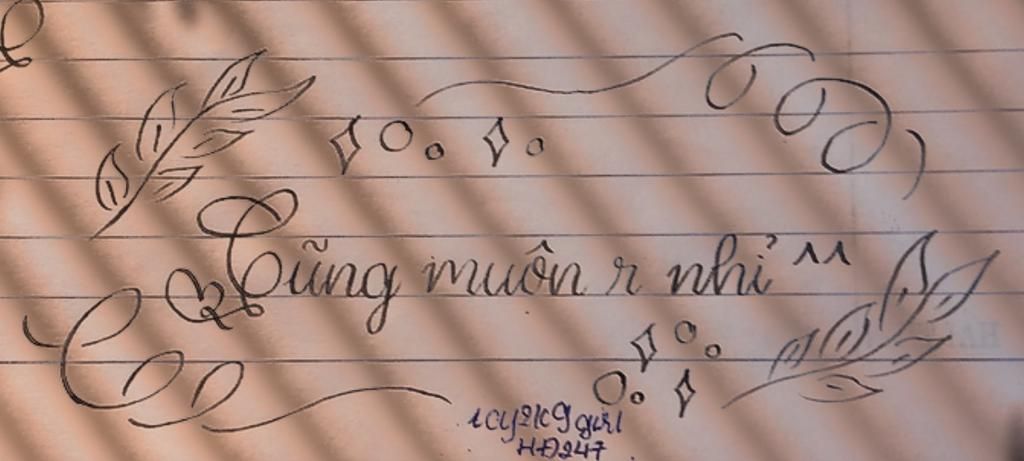 Cũng muôn r nhỉ ^^
icy2k9 girl
HĐ247